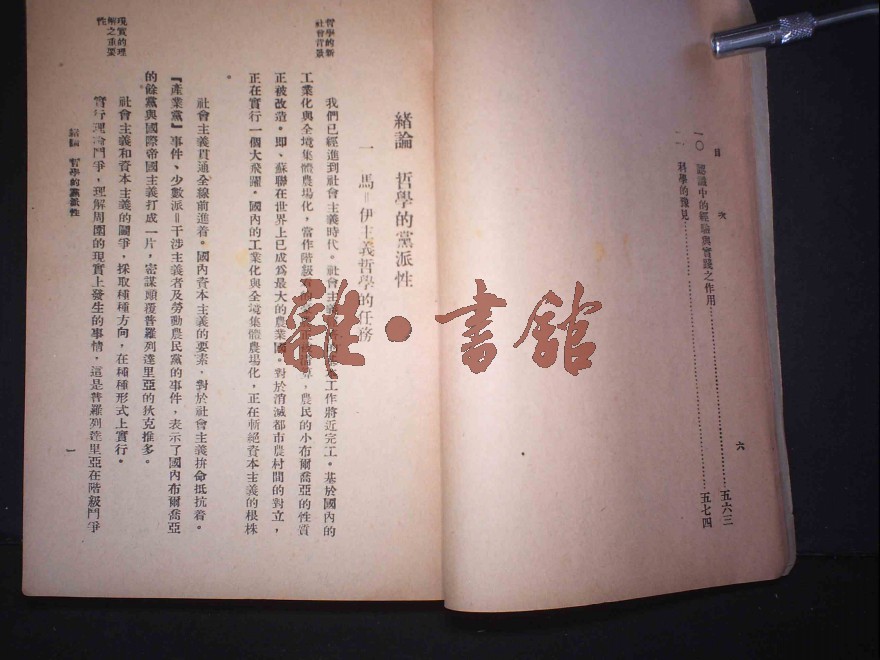 目次
六
一〇 認識中的經驗與實踐之作用……五六三
一一 科學的豫見……五七四
緒論 哲學的黨派性
一 馬=伊主義哲學的任務
哲學的新
社會背景
我們已經進到社會主義時代。社會主義 工作將近完工。基於國內的
工業化與全境集體農場化，當作階級 農民的小布爾喬亞的性質
正被改造。即、蘇聯在世界上已成為最大的農業國。對於消滅都市農村間的對立，
正在實行一個大飛躍。國內的工業化與全境集體農場化，正在斬絕資本主義的根株
。
社會主義貫通全線前進着。國內資本主義的要素，對於社會主義拼命抵抗着。
『產業黨』事件、少數派=干涉主義者及勞動農民黨的事件，表示了國內布爾喬亞
的餘黨與國際帝國主義打成一片，密謀顛覆普羅列達里亞的狄克推多。
現實的理
解之重要
性
社會主義和資本主義的鬪爭，採取種種方向，在種種形式上實行。
實行理論鬥爭，理解周圍的現實上發生的事情，這是普羅列達里亞在階級鬥爭
緒論 哲學的黨派性
一
雜·書館